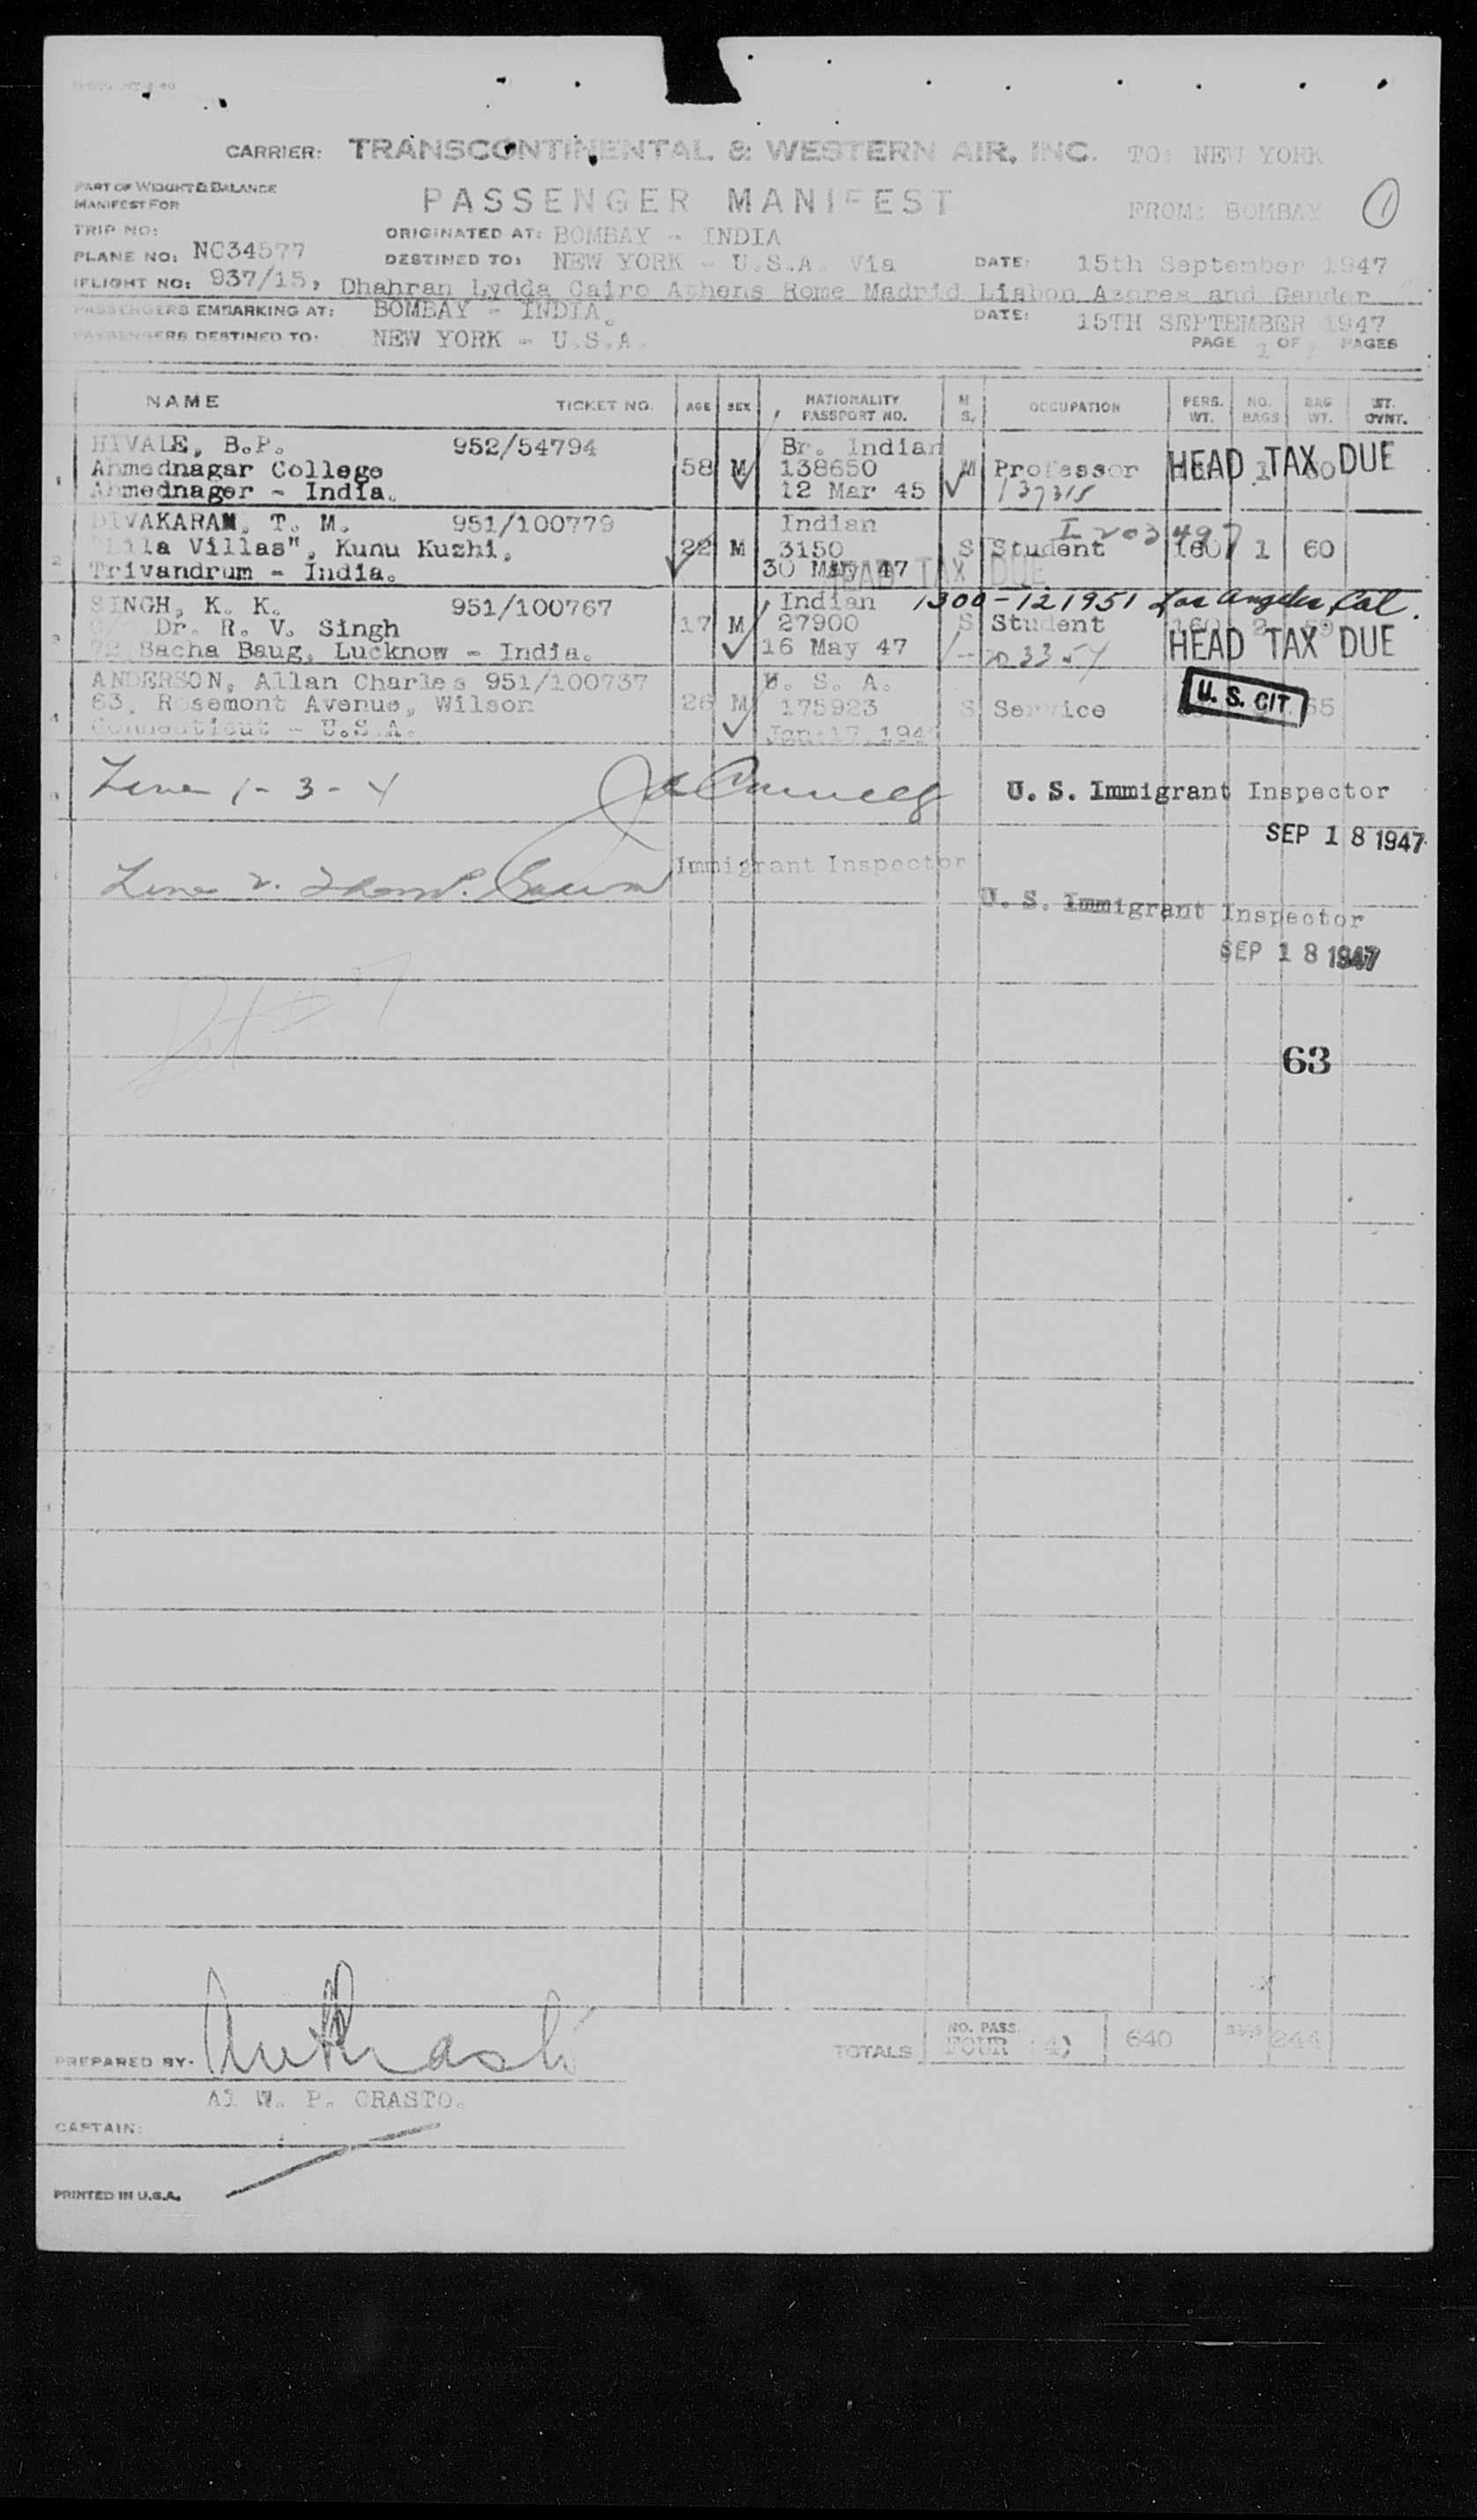 CARRIER: TRANSCONTINENTAL & WESTERN AIR, INC. TO: NEW YORK
PART OF WEIGHT & BALANCE
MANIFEST FOR
PASSENGER MANIFEST
FROM: BOMBAY 1
TRIP NO:
ORIGINATED AT: BOMBAY - INDIA
PLANE NO: NC34577
DESTINED TO: NEW YORK - U.S.A. Via
DATE: 15th September 1947
FLIGHT NO: 937/15, Dhahran Lydda Cairo Athens Rome Madrid Lisbon Azores and Gander
PASSENGERS EMBARKING AT: BOMBAY - INDIA.
DATE: 15TH SEPTEMBER 1947
PASSENGERS DESTINED TO: NEW YORK - U.S.A.
PAGE 1 OF PAGES
NAME TICKET NO. AGE SEX NATIONALITY PASSPORT NO. M S. OCCUPATION PERS. WT. NO. BAGS BAG WT. ST. OVNT.
HIVALE, B.P. 952/54794 Br. Indian
1 Ahmednagar College 58 M 138650 M Professor HEAD TAX DUE
Ahmednager - India. 12 Mar 45 137315
DIVAKARAN, T. M. 951/100779 Indian I 203497
2 "Lila Villas", Kunu Kuzhi, 22 M 3150 S Student 160 1 60
Trivandrum - India. 30 May 47 HEAD TAX DUE
SINGH, K. K. 951/100767 Indian 1300-121951 Los Angeles, Cal.
3 Dr. R. V. Singh 17 M 27900 S Student 160 2 59
72 Bacha Baug, Lucknow - India. 16 May 47 HEAD TAX DUE
ANDERSON, Allan Charles 951/100737 U. S. A.
4 63, Rosemont Avenue, Wilson 26 M 175923 S Service U. S. CIT.
Connecticut - U.S.A. Jan 17, 194
Line 1-3-4 U. S. Immigrant Inspector
SEP 18 1947
Line 2. Immigrant Inspector
U. S. Immigrant Inspector
SEP 18 1947
63
TOTALS NO. PASS. FOUR (4) 640 244
PREPARED BY-
Al W. P. CRASTO.
CAPTAIN:
PRINTED IN U.S.A.